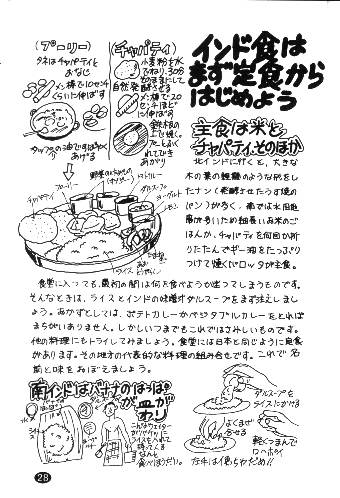 インド食は
まず定食から
はじめよう
(プーリー)
タネはチャパティと
おなじ
メン棒で10センチ
くらいに伸ばす
タップリの油ですばやく
あげる
(チャパティ)
小麦粉を水
でねり、30分
そのままにして
自然発酵させる
メン棒で20
センチほど
に伸ばす
鉄板の
上で焼く。
プーとふく
れてでき
あがり
主食は米と
チャパティ、そのほか
北インドに行くと、大きな
木の葉の標識のような形をし
たナン(発酵させたうす焼の
パン)が多く、南では水田地
帯が多いため細長い米のご
はんか、チャパティを何回か折
りたたんでギー油をたっぷり
つけて焼くパロッタが主食。
チャパティ
プーリー
ダルスープ
ヨーグルト
レモン
ライス
食堂に入っても、最初の間は何を食べようか迷ってしまうものです。
そんなときは、ライスとインドの味噌汁ダルスープをまず注文しまし
ょう。おかずとしては、ポテトカレーかベジタブルカレーをとれば
まちがいありません。しかしいつまでもこれではさみしいものです。
他の料理にもトライしてみましょう。食堂には日本と同じように定食
があります。その地方の代表的な料理の組み合せです。これで名
前と味をおぼえましょう。
南インドはバナナのはっぱ
が皿がわり
水
ライス
ダルスープを
ライスにかける
よくまぜ
合せる
軽くつまんで
口へホイ
左手は使っちゃだめ!!
28